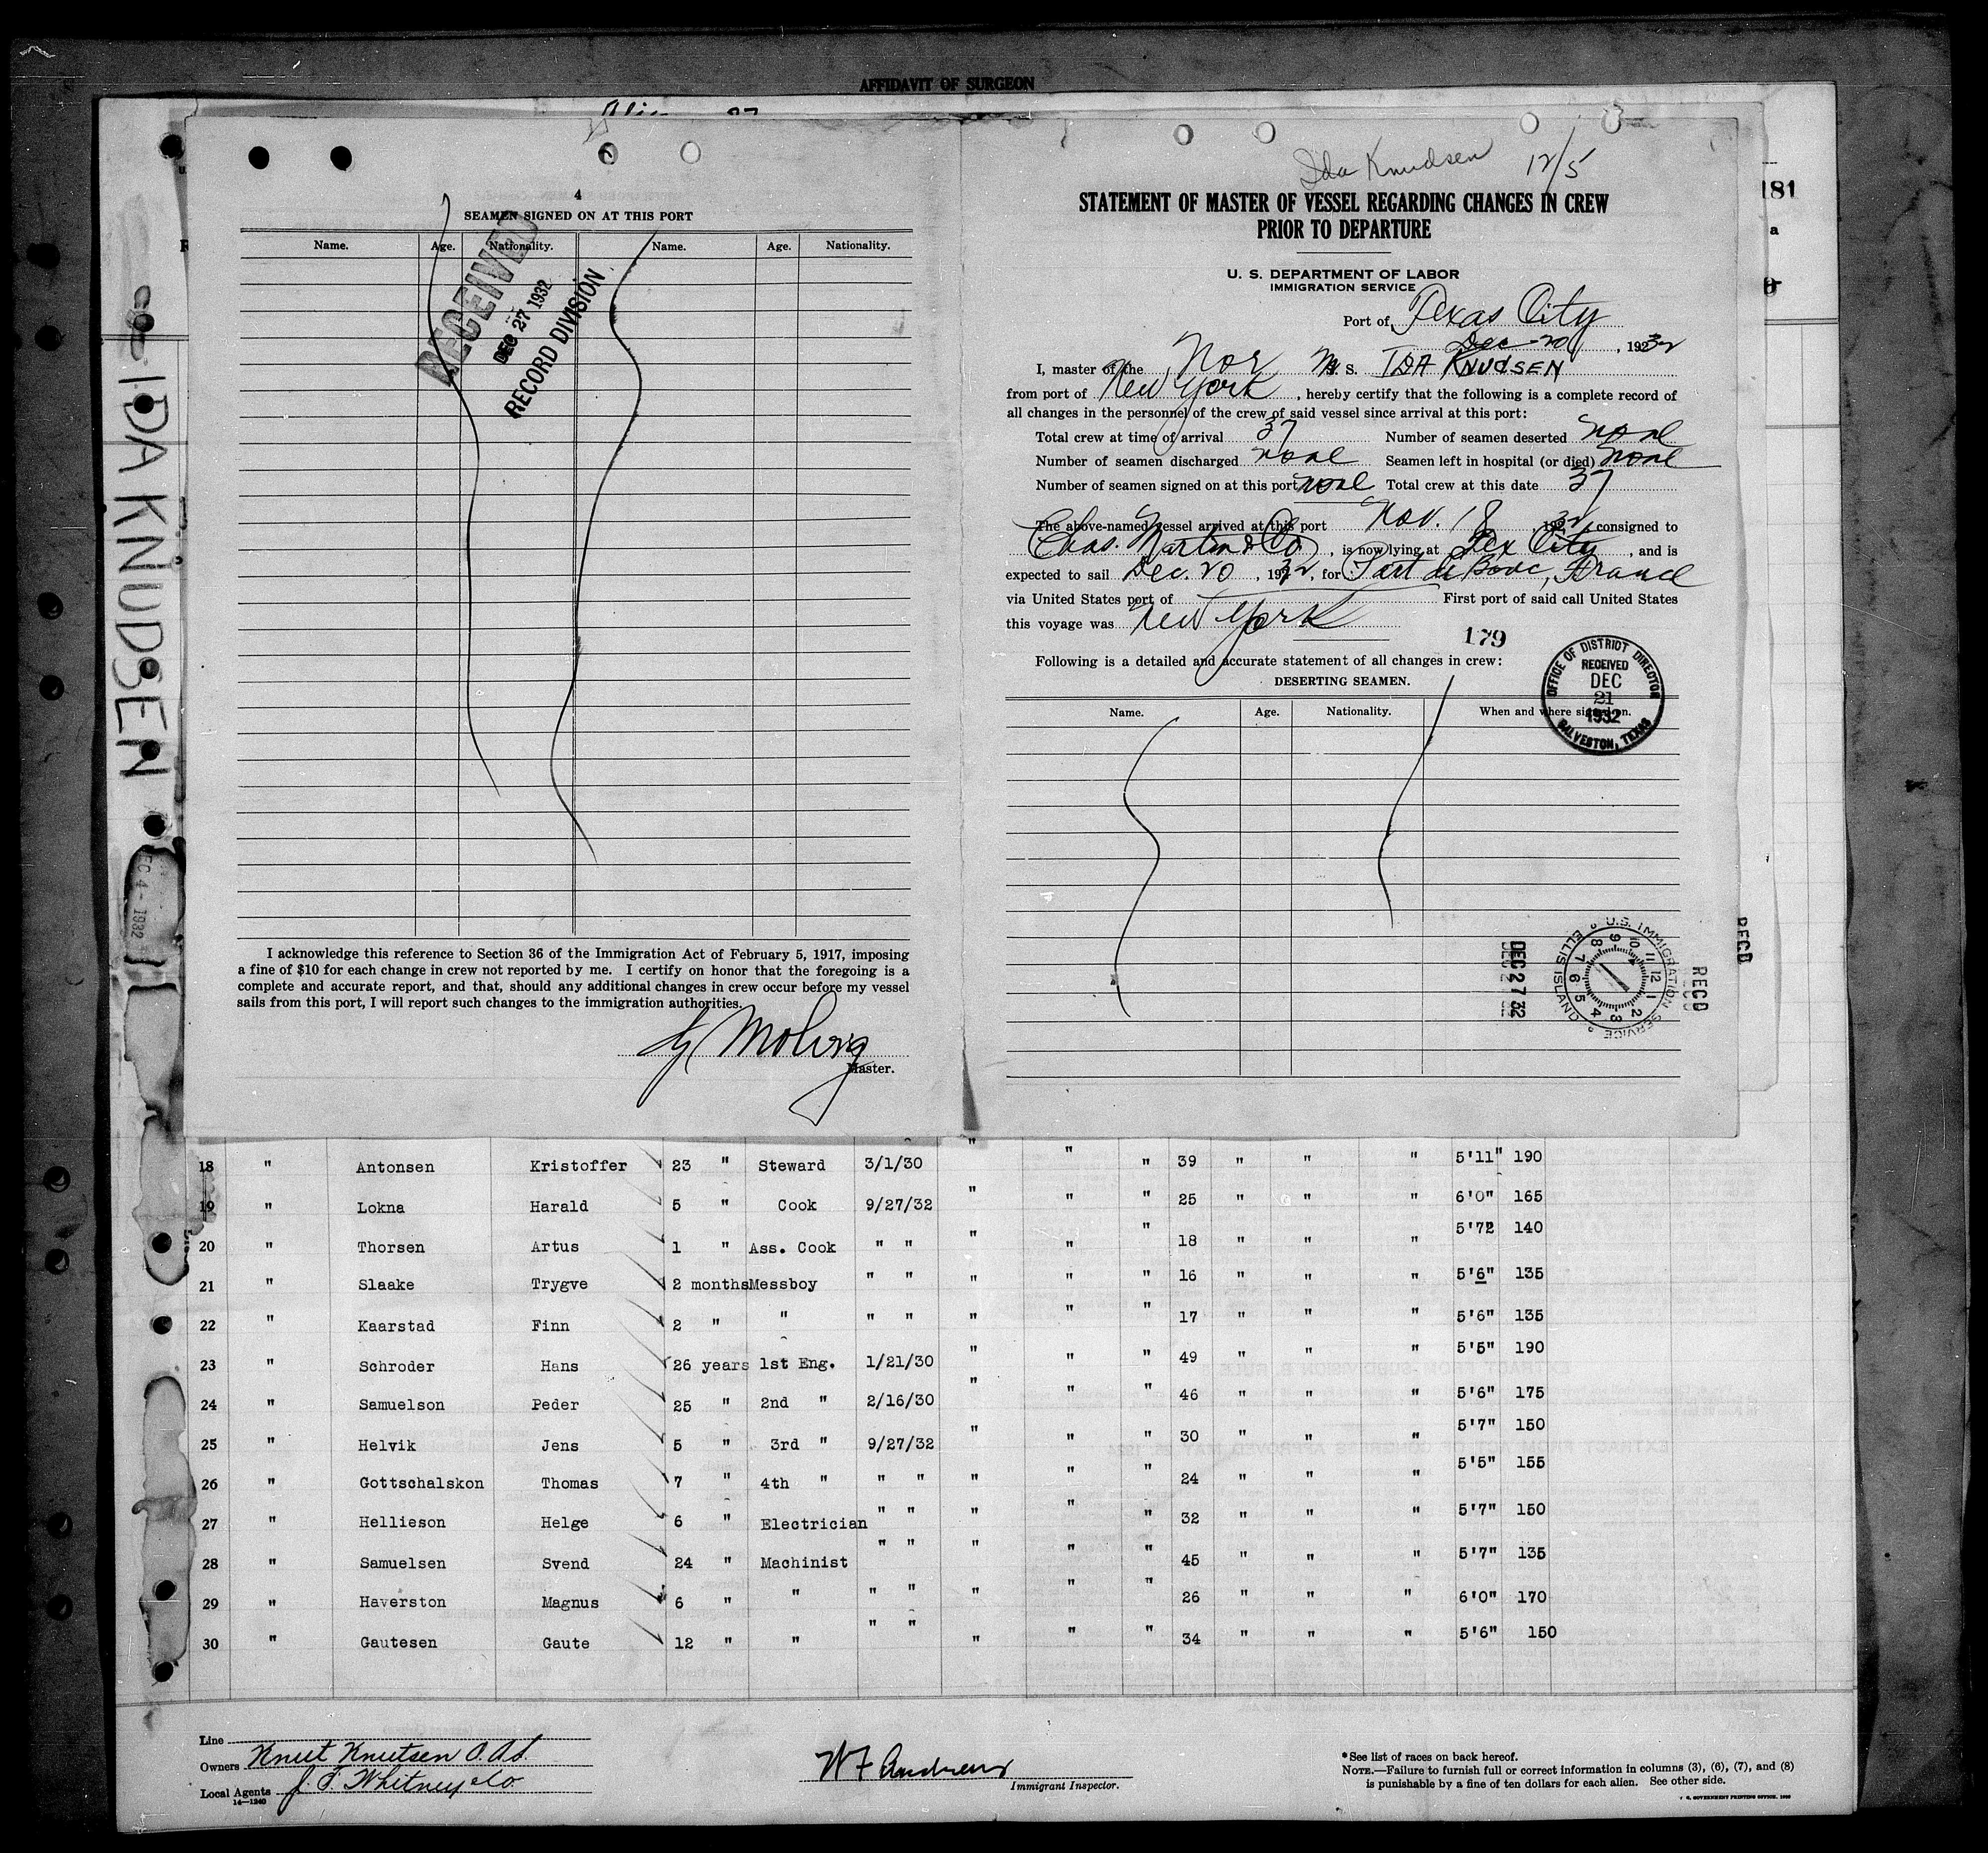 AFFIDAVIT OF SURGEON
4
SEAMEN SIGNED ON AT THIS PORT
Name. Age. Nationality. Name. Age. Nationality.
RECEIVED
DEC 27 1932
RECORD DIVISION
I acknowledge this reference to Section 36 of the Immigration Act of February 5, 1917, imposing
a fine of $10 for each change in crew not reported by me. I certify on honor that the foregoing is a
complete and accurate report, and that, should any additional changes in crew occur before my vessel
sails from this port, I will report such changes to the immigration authorities.
Master.
Ida Knudsen 12/5
STATEMENT OF MASTER OF VESSEL REGARDING CHANGES IN CREW
PRIOR TO DEPARTURE
U. S. DEPARTMENT OF LABOR
IMMIGRATION SERVICE
Port of Texas City
Dec 20, 1932
I, master of the Nor M. S. IDA KNUDSEN
from port of New York, hereby certify that the following is a complete record of
all changes in the personnel of the crew of said vessel since arrival at this port:
Total crew at time of arrival 37 Number of seamen deserted none
Number of seamen discharged none Seamen left in hospital (or died) none
Number of seamen signed on at this port none Total crew at this date 37
The above-named vessel arrived at this port Nov. 18 1932, consigned to
Chas. Martin & Co., is now lying at Tex City, and is
expected to sail Dec. 20, 1932, for Port de Bouc, France
via United States port of First port of said call United States
this voyage was New York
179
Following is a detailed and accurate statement of all changes in crew:
DESERTING SEAMEN.
Name. Age. Nationality. When and where signed on.
OFFICE OF DISTRICT DIRECTOR
RECEIVED
DEC
21
1932
GALVESTON, TEXAS
DEC 27 32
U.S. IMMIGRATION SERVICE
ELLIS ISLAND
RECD
RECD
181
IDA KNUDSEN
DEC 4 - 1932
18 " Antonsen Kristoffer 23 " Steward 3/1/30 " " " 39 " " " 5'11" 190
19 " Lokna Harald 5 " Cook 9/27/32 " " " 25 " " " 6'0" 165
20 " Thorsen Artus 1 " Ass. Cook " " " " " 18 " " " 5'72 140
21 " Slaake Trygve 2 months Messboy " " " " " 16 " " " 5'6" 135
22 " Kaarstad Finn 2 " " " " " " " 17 " " " 5'6" 135
23 " Schroder Hans 26 years 1st Eng. 1/21/30 " " " 49 " " " 5'5" 190
24 " Samuelson Peder 25 " 2nd " 2/16/30 " " " 46 " " " 5'6" 175
25 " Helvik Jens 5 " 3rd " 9/27/32 " " " 30 " " " 5'7" 150
26 " Gottschalskon Thomas 7 " 4th " " " " " " 24 " " " 5'5" 155
27 " Hellieson Helge 6 " Electrician " " " " " 32 " " " 5'7" 150
28 " Samuelsen Svend 24 " Machinist " " " " " 45 " " " 5'7" 135
29 " Haverston Magnus 6 " " " " " " " 26 " " " 6'0" 170
30 " Gautesen Gaute 12 " " " " " " " 34 " " " 5'6" 150
Line
Owners Knut Knutsen O.A.S.
Local Agents J. F. Whitney & Co
14—1240
W F Andrews
Immigrant Inspector.
*See list of races on back hereof.
NOTE.—Failure to furnish full or correct information in columns (3), (6), (7), and (8)
is punishable by a fine of ten dollars for each alien. See other side.